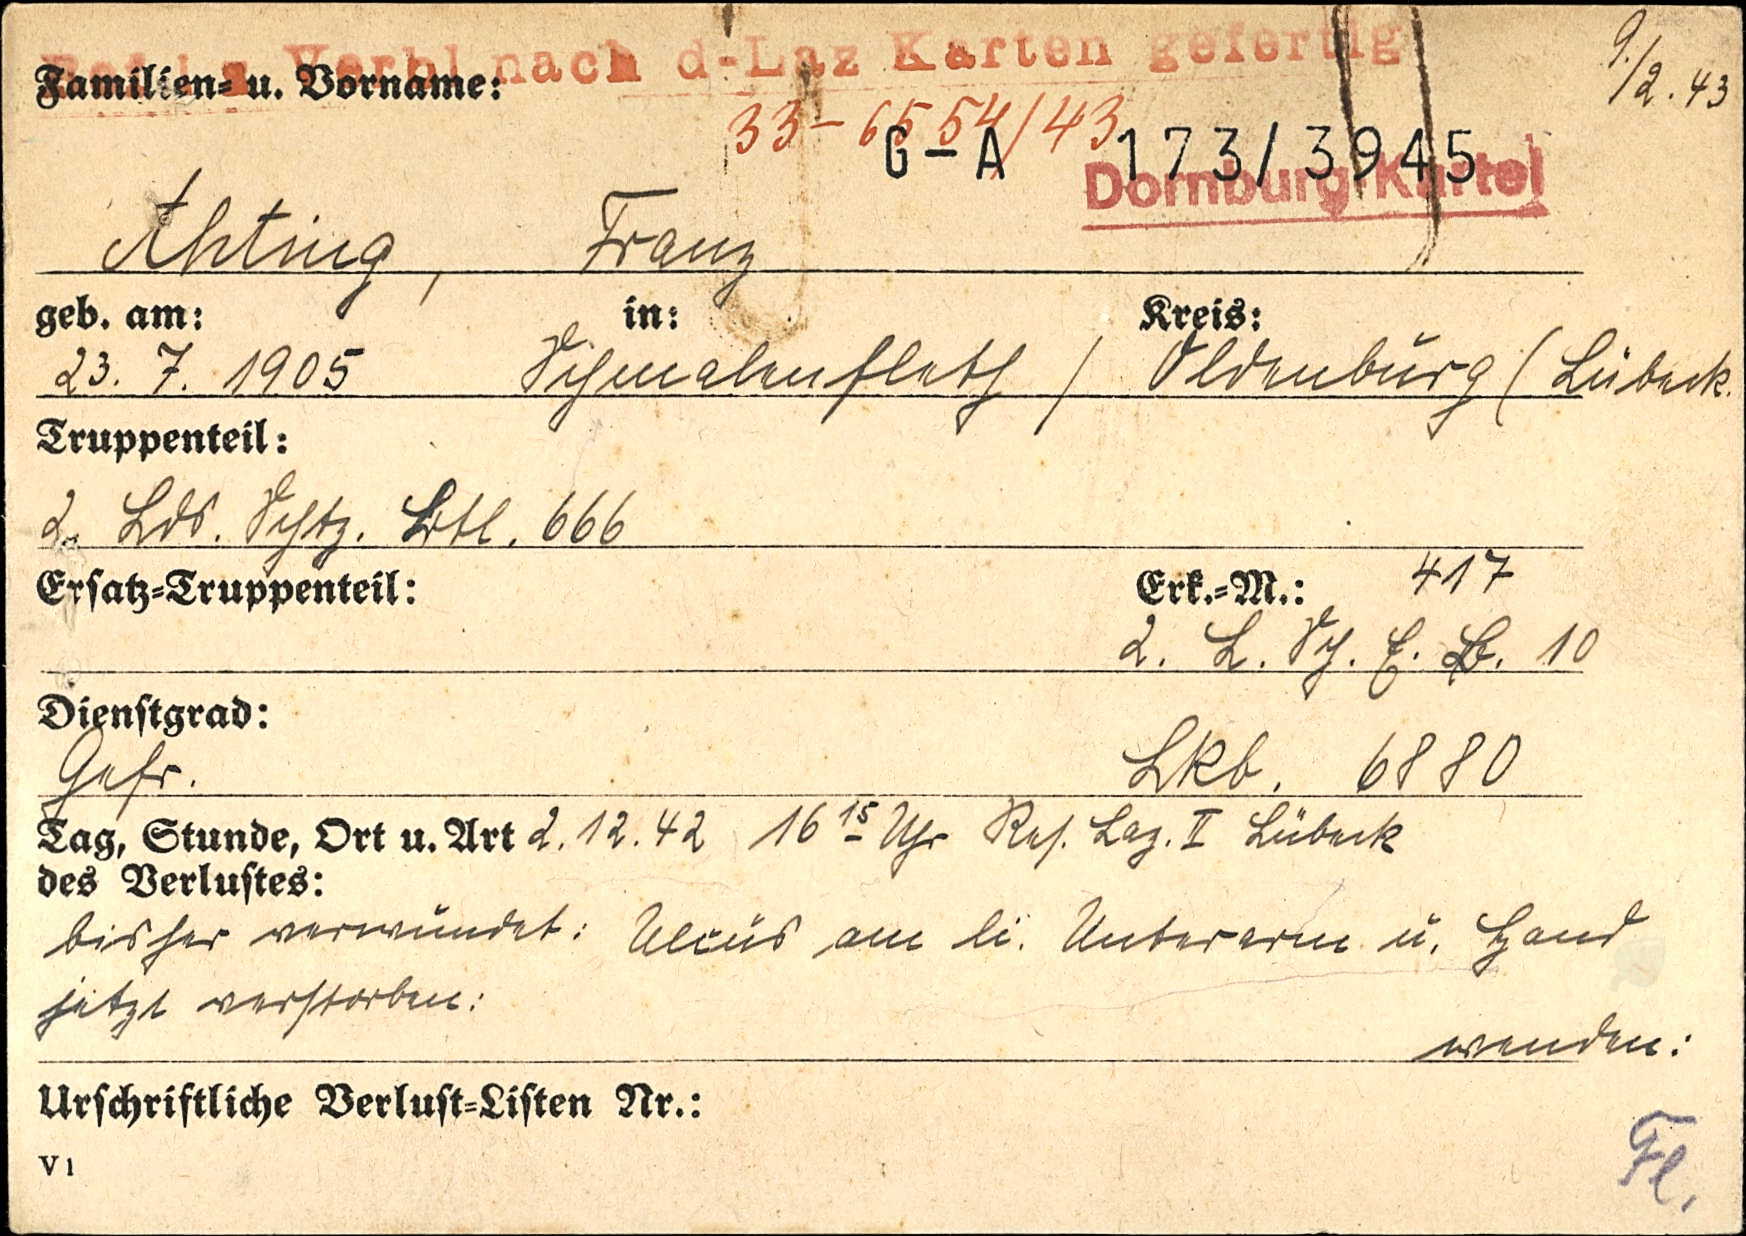 nach d-Laz Karten gefertig
9./2.43
Familien= u. Vorname:
33-6554/43
G-A 173/3945
Dornburg-Kartei
Ahting, Franz
geb. am: in: Kreis:
23. 7. 1905 Schmalenfleth / Oldenburg (Lübeck.
Truppenteil:
2. Lds. Schtz. Btl. 666
Ersatz=Truppenteil: Erk.=M.: 417
2. L. Sch. E. B. 10
Dienstgrad:
Gefr. Lkb. 6880
Tag, Stunde, Ort u. Art 2.12.42 16 15 Uhr Res. Laz. II Lübeck
des Verlustes:
bisher verwundet: Ulcus am li. Unterarm u. Hand
jetzt verstorben:
wenden:
Urschriftliche Verlust=Listen Nr.:
V 1
Fl.